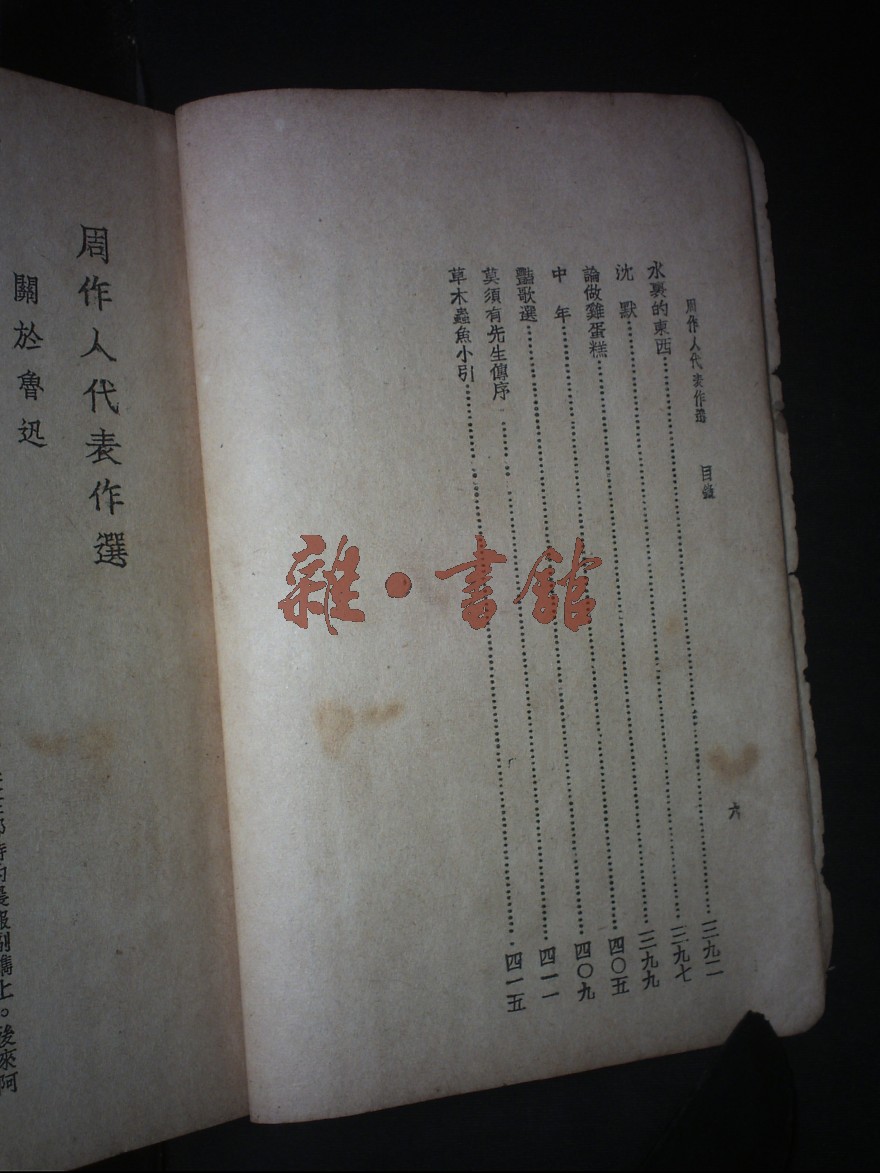 周作人代表作選　目錄　六
水裏的東西……三九二
沈默……三九七
論做雞蛋糕……三九九
中年……四〇五
豔歌選……四〇九
莫須有先生傳序……四一一
草木蟲魚小引……四一五
雜·書館
周作人代表作選
關於魯迅
的晨報副鐫上。後來阿